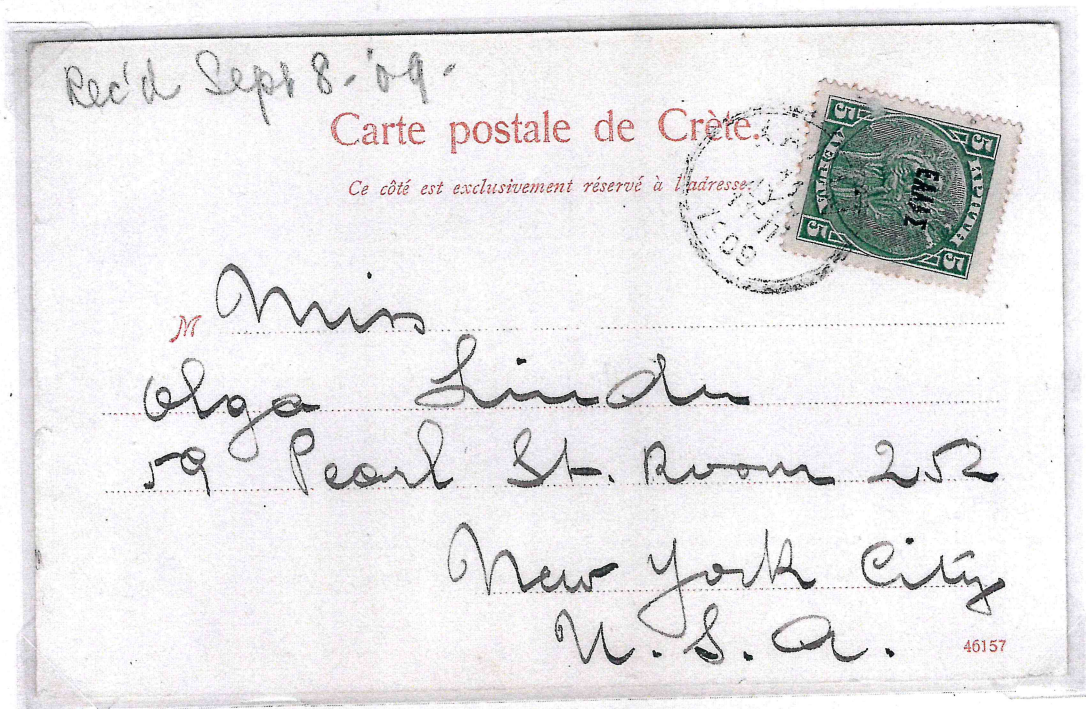 Rec'd Sept 8 - '09 -
Carte postale de Crète.
Ce côté est exclusivement réservé à l'adresse
5 5
ΕΛΛΑΣ
5 5
M Miss
Olga Linder
59 Pearl St. Room 252
New York City
U. S. A.
46157